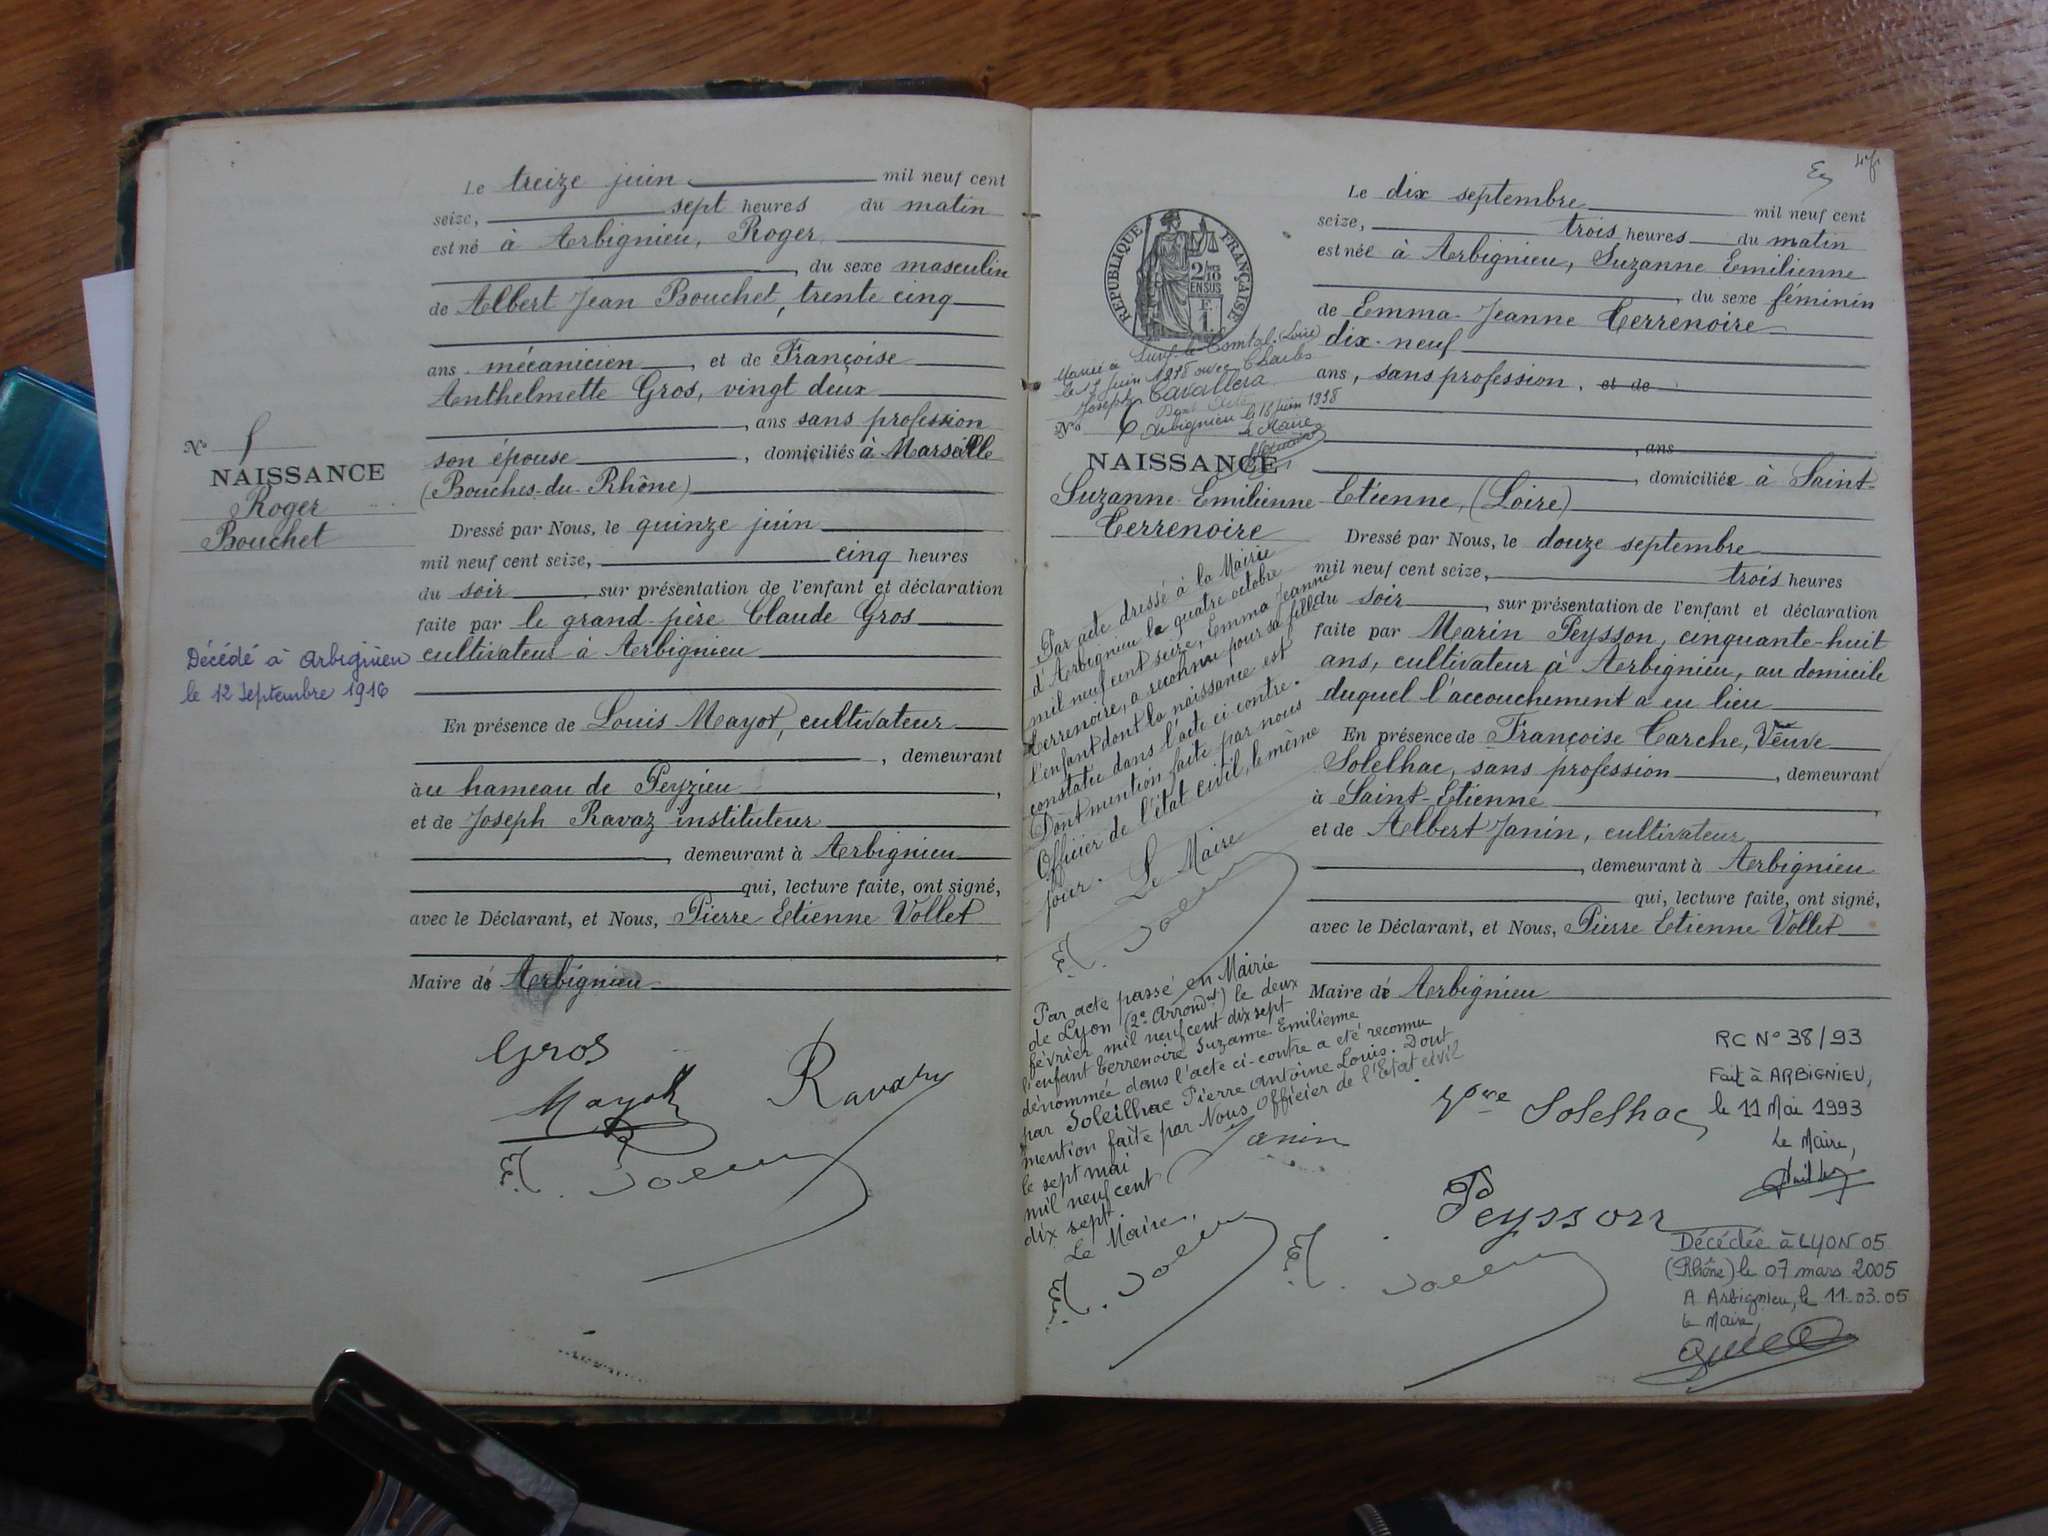 Le treize juin mil neuf cent
seize, sept heures du matin
est né à Arbignieu, Roger
, du sexe masculin
de Albert Jean Bouchet, trente cinq
ans mécanicien, et de Françoise
Anthelmette Gros, vingt deux
, ans sans profession
son épouse, domiciliés à Marseille
(Bouches-du-Rhône)
Dressé par Nous, le quinze juin
mil neuf cent seize, cinq heures
du soir, sur présentation de l'enfant et déclaration
faite par le grand-père Claude Gros
cultivateur à Arbignieu
En présence de Louis Mayot, cultivateur
, demeurant
au hameau de Peyzieu,
et de Joseph Ravaz instituteur
, demeurant à Arbignieu
qui, lecture faite, ont signé,
avec le Déclarant, et Nous, Pierre Etienne Vollet
Maire de Arbignieu
Gros
Mayot
Ravaz
No
NAISSANCE
Roger
Bouchet
Décédé à Arbignieu
le 12 Septembre 1916
RÉPUBLIQUE FRANÇAISE
2/10
EN SUS
F
1
Mariée à Sury-le-Comtal (Loire)
le juin 1938 avec Charles
Joseph Cavallera
Dont Acte
Arbignieu le 18 juin 1938
Le Maire
No 6
NAISSANCE
Suzanne Emilienne
Terrenoire
Par acte dressé à la Mairie
d'Arbignieu le quatre octobre
mil neuf cent seize, Emma Jeanne
Terrenoire, a reconnu pour sa fille
l'enfant dont la naissance est
constatée dans l'acte ci-contre.
Dont mention faite par nous
Officier de l'état civil, le même
jour. Le Maire
Par acte passé en Mairie
de Lyon (2e Arrondt) le deux
février mil neuf cent dix sept
l'enfant Terrenoire Suzanne Emilienne
dénommée dans l'acte ci-contre a été reconnu
par Soleilhac Pierre Antoine Louis. Dont
mention faite par Nous Officier de l'Etat civil
le sept mai
mil neuf cent
dix sept.
Le Maire,
Le dix septembre mil neuf cent
seize, trois heures du matin
est née à Arbignieu, Suzanne Emilienne
, du sexe féminin
de Emma Jeanne Terrenoire
dix-neuf
ans, sans profession, et de
, ans
, domiciliée à Saint-
Etienne, (Loire)
Dressé par Nous, le douze septembre
mil neuf cent seize, trois heures
du soir, sur présentation de l'enfant et déclaration
faite par Marin Peysson, cinquante-huit
ans, cultivateur à Arbignieu, au domicile
duquel l'accouchement a eu lieu
En présence de Françoise Carche, Veuve
Solelhac, sans profession, demeurant
à Saint-Etienne,
et de Albert Janin, cultivateur
, demeurant à Arbignieu
qui, lecture faite, ont signé,
avec le Déclarant, et Nous, Pierre Etienne Vollet
Maire de Arbignieu
Vve Solelhac
Janin
Peysson
RC N° 38/93
Fait à ARBIGNIEU,
le 11 Mai 1993
Le Maire,
Décédée à LYON 05
(Rhône) le 07 mars 2005
A Arbignieu, le 11.03.05
Le Maire,